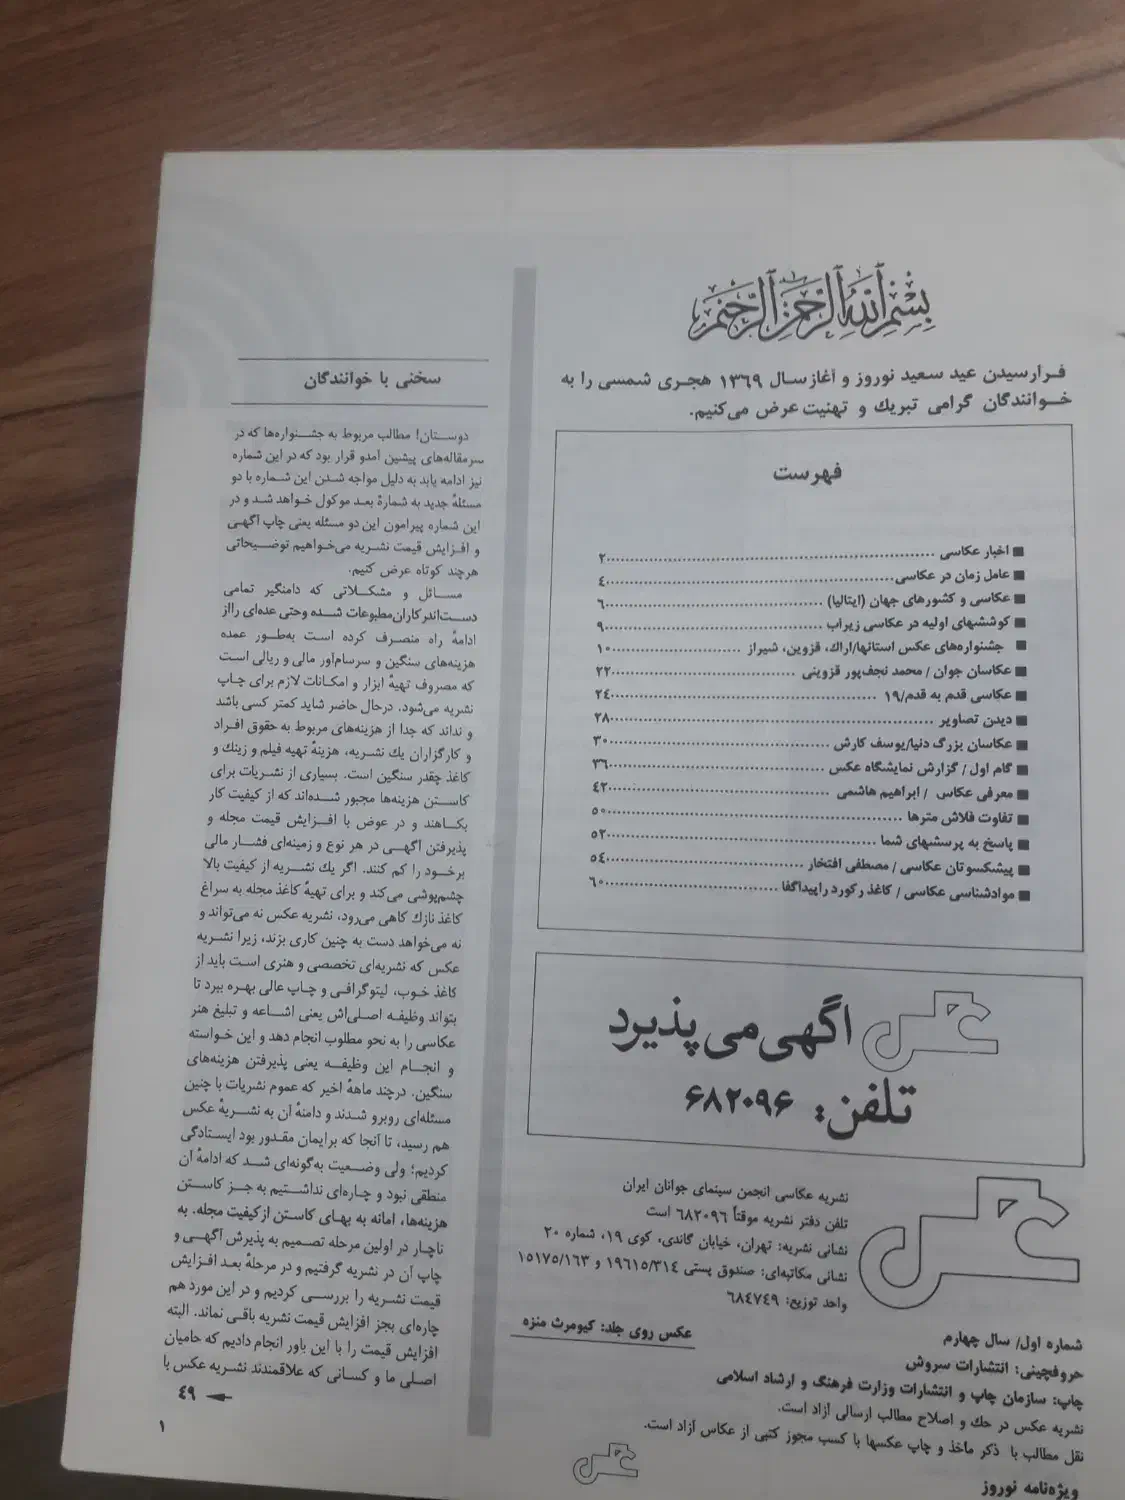 بسم الله الرحمن الرحیم
فرارسیدن عید سعید نوروز و آغاز سال ۱۳۶۹ هجری شمسی را به
خوانندگان گرامی تبریك و تهنیت عرض می‌کنیم.
فهرست
اخبار عکاسی ۲
عامل زمان در عکاسی ۴
عکاسی و کشورهای جهان (ایتالیا) ۶
کوششهای اولیه در عکاسی زیرآب ۹
جشنواره‌های عکس استانها/اراك، قزوین، شیراز ۱۰
عکاسان جوان / محمد نجف‌پور قزوینی ۲۲
عکاسی قدم به قدم/۱۹ ۲۴
دیدن تصاویر ۲۸
عکاسان بزرگ دنیا/یوسف کارش ۳۰
گام اول / گزارش نمایشگاه عکس ۳۶
معرفی عکاس / ابراهیم هاشمی ۴۲
تفاوت فلاش مترها ۵۰
پاسخ به پرسشهای شما ۵۲
پیشکسوتان عکاسی / مصطفی افتخار ۵۴
موادشناسی عکاسی / کاغذ رکورد راپیداگفا ۶۰
عکس آگهی می پذیرد
تلفن: ۶۸۲۰۹۶
عکس
نشریه عکاسی انجمن سینمای جوانان ایران
تلفن دفتر نشریه موقتاً ۶۸۲۰۹۶ است
نشانی نشریه: تهران، خیابان گاندی، کوی ۱۹، شماره ۲۰
نشانی مکاتبه‌ای: صندوق پستی ۱۹۶۱۵/۳۱۴ و ۱۵۱۷۵/۱۶۳
واحد توزیع: ۶۸۴۷۴۹
عکس روی جلد: کیومرث منزه
شماره اول/ سال چهارم
حروفچینی: انتشارات سروش
چاپ: سازمان چاپ و انتشارات وزارت فرهنگ و ارشاد اسلامی
نشریه عکس در حك و اصلاح مطالب ارسالی آزاد است.
نقل مطالب با ذکر ماخذ و چاپ عکسها با کسب مجوز کتبی از عکاس آزاد است.
ویژه‌نامه نوروز
عکس
سخنی با خوانندگان
دوستان! مطالب مربوط به جشنواره‌ها که در
سرمقاله‌های پیشین آمدو قرار بود که در این شماره
نیز ادامه یابد به دلیل مواجه شدن این شماره با دو
مسئلهٔ جدید به شمارهٔ بعد موکول خواهد شد و در
این شماره پیرامون این دو مسئله یعنی چاپ آگهی
و افزایش قیمت نشریه می‌خواهیم توضیحاتی
هرچند کوتاه عرض کنیم.
مسائل و مشکلاتی که دامنگیر تمامی
دست‌اندرکاران‌مطبوعات شده وحتی عده‌ای رااز
ادامهٔ راه منصرف کرده است به‌طور عمده
هزینه‌های سنگین و سرسام‌آور مالی و ریالی است
که مصروف تهیهٔ ابزار و امکانات لازم برای چاپ
نشریه می‌شود. درحال حاضر شاید کمتر کسی باشد
و نداند که جدا از هزینه‌های مربوط به حقوق افراد
و کارگزاران یك نشریه، هزینهٔ تهیه فیلم و زینك و
کاغذ چقدر سنگین است. بسیاری از نشریات برای
کاستن هزینه‌ها مجبور شده‌اند که از کیفیت کار
بکاهند و در عوض با افزایش قیمت مجله و
پذیرفتن آگهی در هر نوع و زمینه‌ای فشار مالی
برخود را کم کنند. اگر یك نشریه از کیفیت بالا
چشم‌پوشی می‌کند و برای تهیهٔ کاغذ مجله به سراغ
کاغذ نازك کاهی می‌رود، نشریه عکس نه می‌تواند و
نه می‌خواهد دست به چنین کاری بزند، زیرا نشریه
عکس که نشریه‌ای تخصصی و هنری است باید از
کاغذ خوب، لیتوگرافی و چاپ عالی بهره ببرد تا
بتواند وظیفه اصلی‌اش یعنی اشاعه و تبلیغ هنر
عکاسی را به نحو مطلوب انجام دهد و این خواسته
و انجام این وظیفه یعنی پذیرفتن هزینه‌های
سنگین. درچند ماههٔ اخیر که عموم نشریات با چنین
مسئله‌ای روبرو شدند و دامنهٔ آن به نشریهٔ عکس
هم رسید، تا آنجا که برایمان مقدور بود ایستادگی
کردیم؛ ولی وضعیت به‌گونه‌ای شد که ادامهٔ آن
منطقی نبود و چاره‌ای نداشتیم به جز کاستن
هزینه‌ها، امانه به بهای کاستن ازکیفیت مجله. به
ناچار در اولین مرحله تصمیم به پذیرش آگهی و
چاپ آن در نشریه گرفتیم و در مرحلهٔ بعد افزایش
قیمت نشریه را بررسی کردیم و در این مورد هم
چاره‌ای بجز افزایش قیمت نشریه باقی نماند. البته
افزایش قیمت را با این باور انجام دادیم که حامیان
اصلی ما و کسانی که علاقمندند نشریه عکس با
۴۹
۱